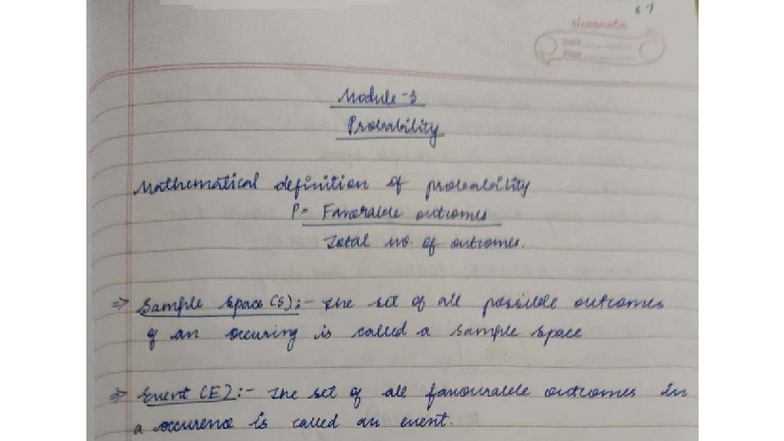 67
Neeonata
Date
Page
Module-3
Probability
Mathematical definition of probability
P= Favorable outcomes
Total no. of outcomes.
⇒ Sample space (S):- The set of all possible outcomes
of an occuring is called a sample space
⇒ Event (E):- The set of all favourable outcomes in
a occurence is called an event.